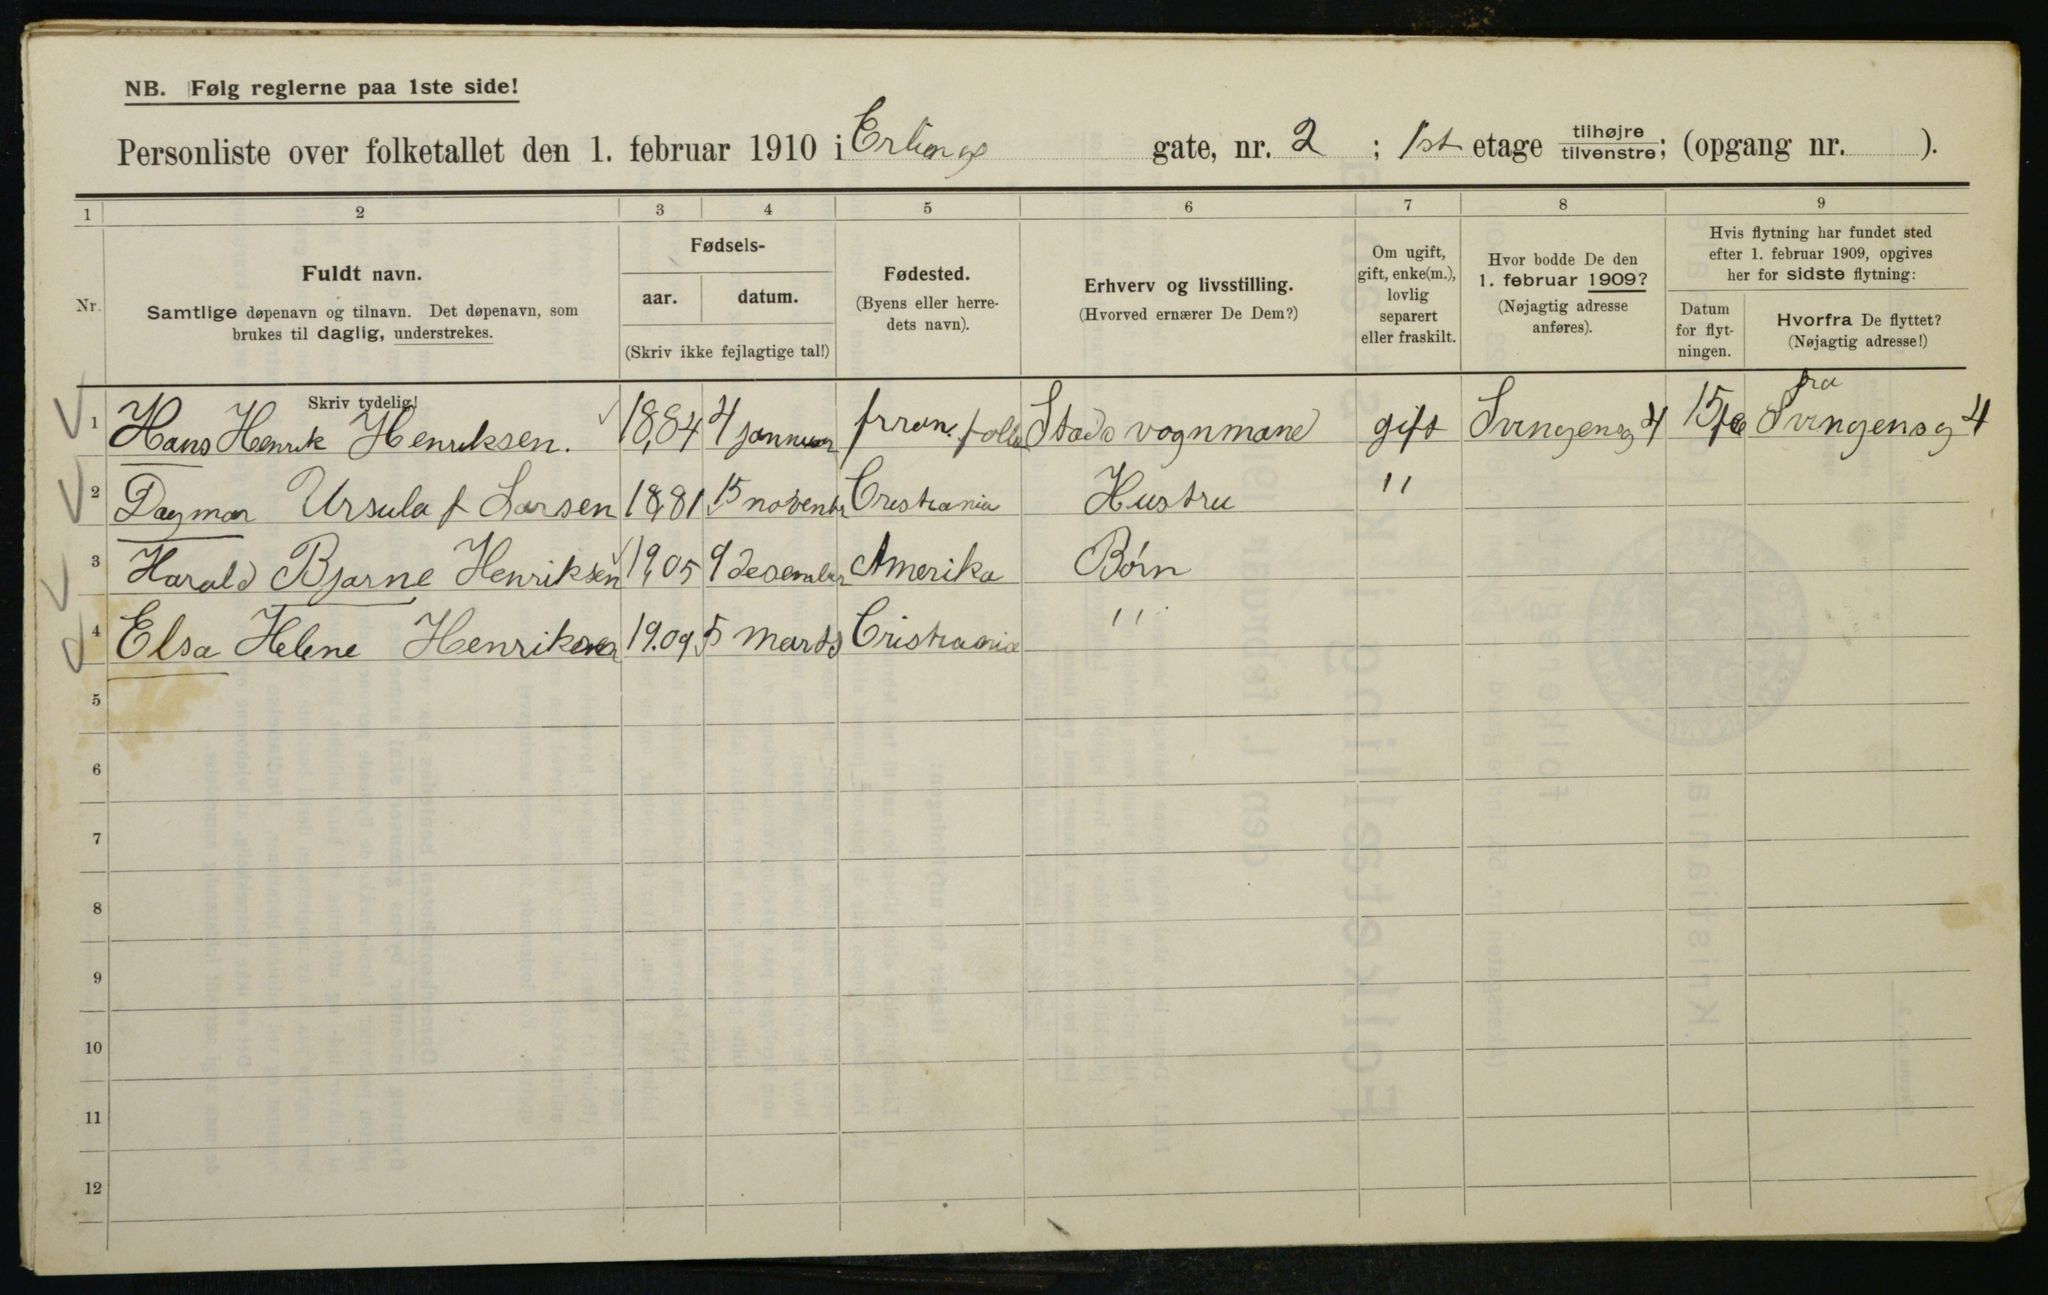 NB. Følg reglerne paa 1ste side!
Personliste over folketallet den 1. februar 1910 i Erlings gate, nr. 2 ; 1st etage tilhøjre/tilvenstre; (opgang nr. ).
1 2 3 4 5 6 7 8 9
Nr.
Fuldt navn.
Samtlige døpenavn og tilnavn. Det døpenavn, som
brukes til daglig, understrekes.
Fødsels-
aar. datum.
(Skriv ikke fejlagtige tal!)
Fødested.
(Byens eller herre-
dets navn).
Erhverv og livsstilling.
(Hvorved ernærer De Dem?)
Om ugift,
gift, enke(m.),
lovlig
separert
eller fraskilt.
Hvor bodde De den
1. februar 1909?
(Nøjagtig adresse
anføres).
Hvis flytning har fundet sted
efter 1. februar 1909, opgives
her for sidste flytning:
Datum
for flyt-
ningen.
Hvorfra De flyttet?
(Nøjagtig adresse!)
Skriv tydelig!
fra
1 Hans Henrik Henriksen. 18,84 4 januar gift Svingensg 4 15 Svingensg 4
2 Dagmar Ursula f Larsen 18,81 15 november Cristiania Hustru "
3 Harald Bjarne Henriksen 19,05 9 desember Amerika Børn
4 Elsa Helene Henriksen 19.09 5 marts Cristiania "
5
6
7
8
9
10
11
12